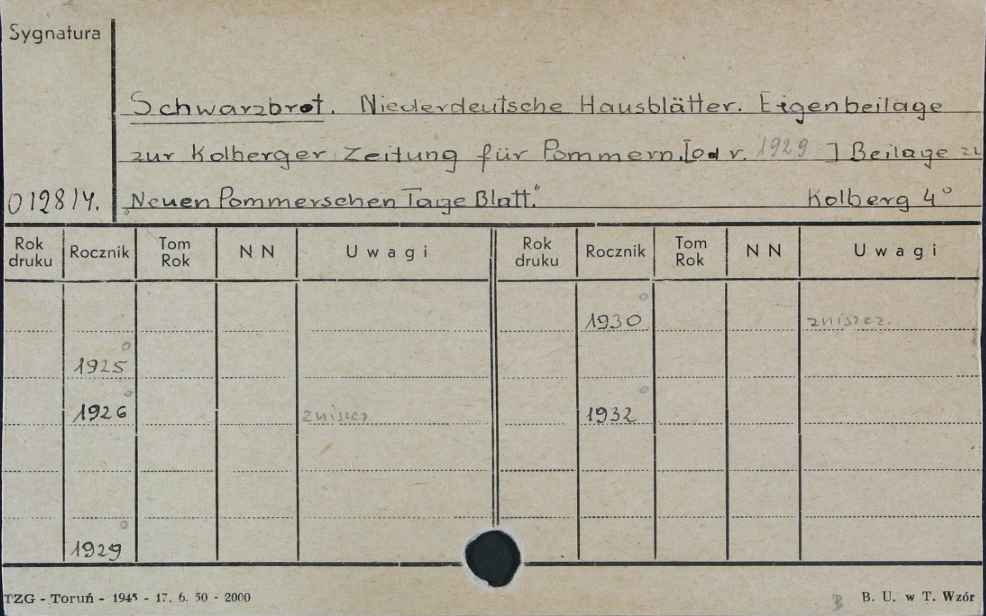 Sygnatura
Schwarzbrot. Niederdeutsche Hausblätter. Eigenbeilage
zur Kolberger Zeitung für Pommern. [od r. 1929 ] Beilage zu
0128/4. „Neuen Pommerschen Tage Blatt." Kolberg 4°
Rok druku Rocznik Tom Rok N N Uwagi Rok druku Rocznik Tom Rok N N Uwagi
1930 zniszcz.
1925
1926 zniszcz 1932
1929
TZG - Toruń - 1945 - 17. 6. 50 - 2000 B. U. w T. Wzór